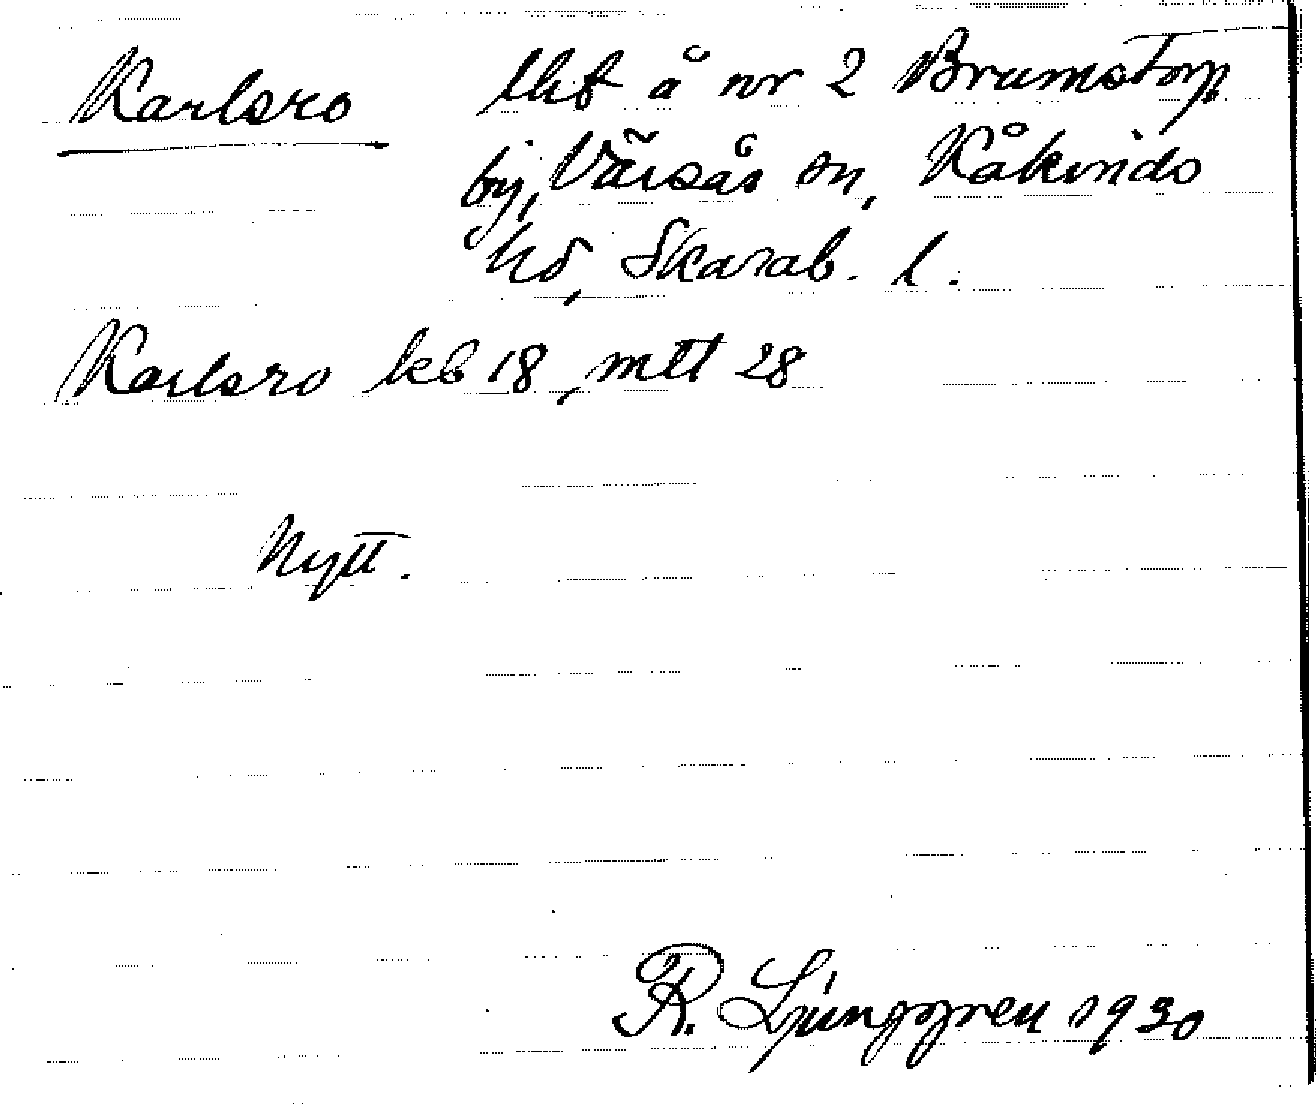 Karlsro lht å nr 2 Brumstorp
by, Värsås sn, Kåkinds
hd, Skarab. l.
Karlsro kb 18, mtt 28
Nytt.
R. Ljunggren 1930